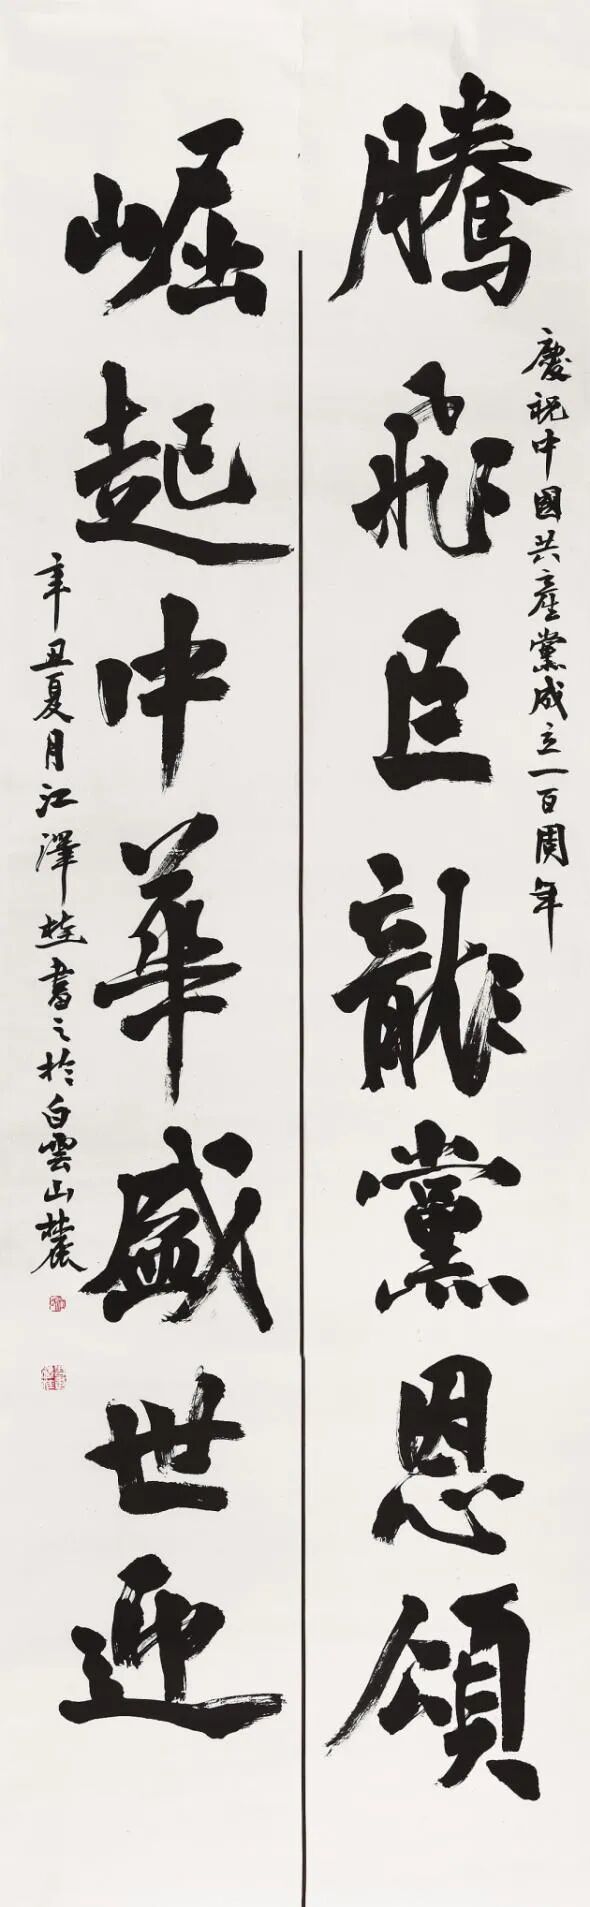 慶祝中國共產黨成立一百周年
騰飛巨龍黨恩頌
崛起中華盛世迎
辛丑夏月江澤桂書之於白雲山麓